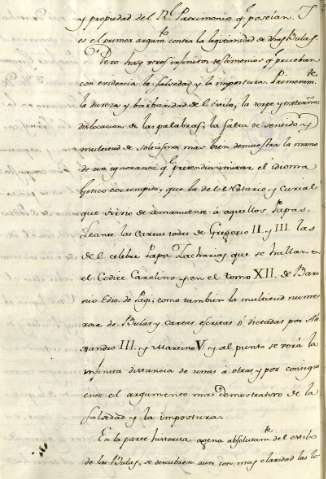 y propiedad del Rl. Patrimonio q. poseían.
es el primer argum.to contra la legitimidad de dhas Bulas.
Pero hay otros infinitos de q. prueban
con evidencia la falsedad y la impostura. Primeram.te
la dureza y barbaridad del estilo, la torpe y
dislocacion de las palabras, la falta de sentido, y
multitud de solecismos mas bien demuestra la mano
de un ignorante q. pretendia imitar el idioma
Gotico corrompido, que la del Notario y Curial
que sirvio de amanuense à aquellos Papas.
Leanse las Cartas todas de Gregorio II y III. las
del celebre Papa Zacharias que se hallan en
el Codice Carolino y en el tomo XII. de Baro
nio Edic. de Pagi, como tambien la multitud nume
rosa de Bulas y Cartas escritas ó dictadas por Ale
xandro III. y Martino V. y al punto se verá la
infinita distancia de unas à otras y por consigui
ente el argumento mas demostrativo de la
falsedad y la impostura.
En la parte historica agena absolutam.te del estilo
de las Bulas, se descubren aun con mas claridad las